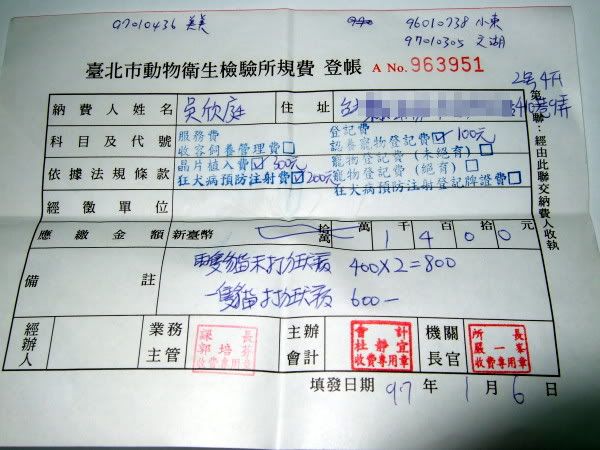 97010436 美美
96010738 小東
97010305 文湖
臺北市動物衛生檢驗所規費 登帳 A No. 963951
2号4F
納費人姓名 吳欣庭 住址 台
科目及代號
依據法規條款
服務費
收容飼養管理費□
晶片植入費☑300元
狂犬病預防注射費☑200元
登記費
認養寵物登記費☑100元
寵物登記費(未絕育)□
寵物登記費(絕育)□
狂犬病預防注射登記牌證費□
經徵單位
應繳金額 新臺幣 拾萬 萬 1千4百0拾0元
備註
兩隻貓未打狂犬病 400×2=800
一隻貓打狂犬病 600-
經辦人 業務主管 主辦會計 機關長官
課長
郭培
收費專用章
會計
杜靜宜
收費專用章
所長
嚴一峯
收費專用章
填發日期 97年1月6日
第 聯:經由此聯交納費人收執